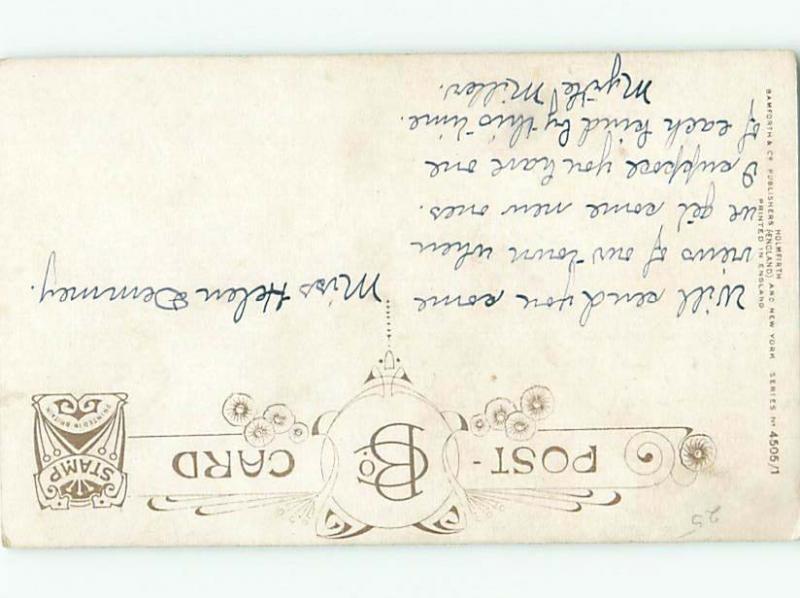 POST- CARD
B Co
STAMP
PRINTED IN BRITAIN
Will send you some
views of our town when
we get some new ones.
I suppose you have one
of each kind by this time.
Myrtle Miller.
Miss Helen Demmey.
BAMFORTH & Co PUBLISHERS HOLMFIRTH (ENGLAND) AND NEW YORK SERIES No 4505/1
PRINTED IN ENGLAND
25